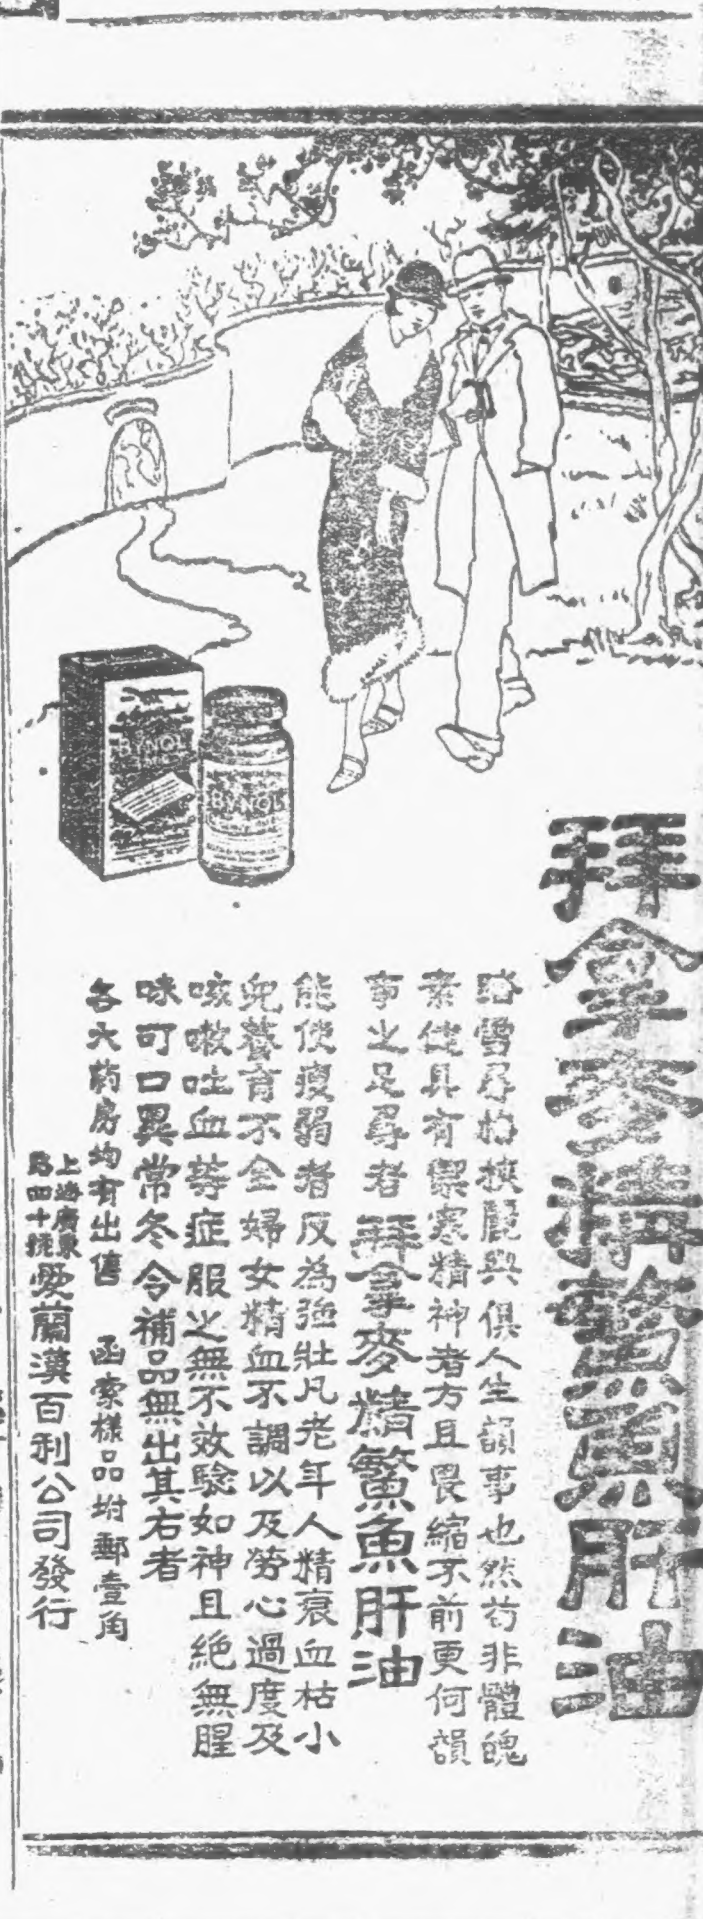 拜拿麥精鰵魚肝油
踏雪尋梅挾麗與俱人生韻事也然苟非體魄
素健具有禦寒精神者方且畏縮不前更何韻
事之足尋者拜拿麥精鰵魚肝油
能使瘦弱者反為強壯凡老年人精衰血枯小
兒養育不全婦女精血不調以及勞心過度及
咳嗽吐血等症服之無不效驗如神且絕無腥
味可口異常冬令補品無出其右者
各大葯房均有出售 函索樣品坿郵壹角
上海廣東
路四十號
愛蘭漢百利公司發行
BYNOL
BYNOL